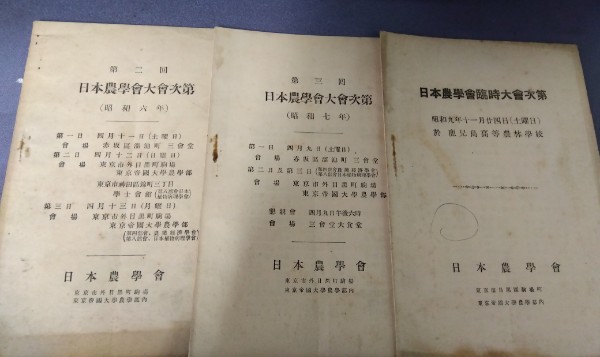 第二回
日本農學會大會次第
(昭和六年)
第一日 四月十一日(土曜日)
會場 赤坂區溜池町 三會堂
第二日 四月十二日(日曜日)
會場 東京市外目黑町駒場
東京帝國大學農學部
東京市神田區錦町三丁目
學士會館
第三日 四月十三日(月曜日)
會場 東京市外目黑町駒場
東京帝國大學農學部
日本農學會
東京市外目黑町駒場
東京帝國大學農學部內
第三回
日本農學會大會次第
(昭和七年)
第一日 四月九日(土曜日)
會場 赤坂區溜池町 三會堂
第二日及第三日
會場 東京市外目黑町駒場
東京帝國大學農學部
懇親會 四月九日午後六時
會場 三會堂大食堂
日本農學會
東京市外目黑町駒場
東京帝國大學農學部內
日本農學會臨時大會次第
昭和九年十一月廿四日(土曜日)
於 鹿兒島高等農林學校
日本農學會
東京市目黑區駒場町
東京帝國大學農學部內